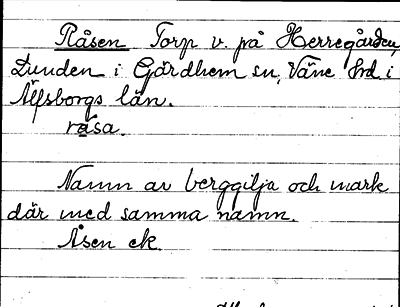 Råsen Torp v. på Herregården,
Lunden i Gärdhem sn, Väne hrd. i
Älfsborgs län.
råsa.
Namn av berggilja och mark
där med samma namn.
Åsen ek.